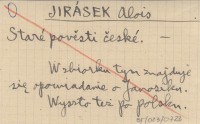 JIRÁSEK Alois
Staré pověsti české. —
W zbiorku tym znajduje
się opowiadanie o Janosiku.
Wyszło też po polsku.